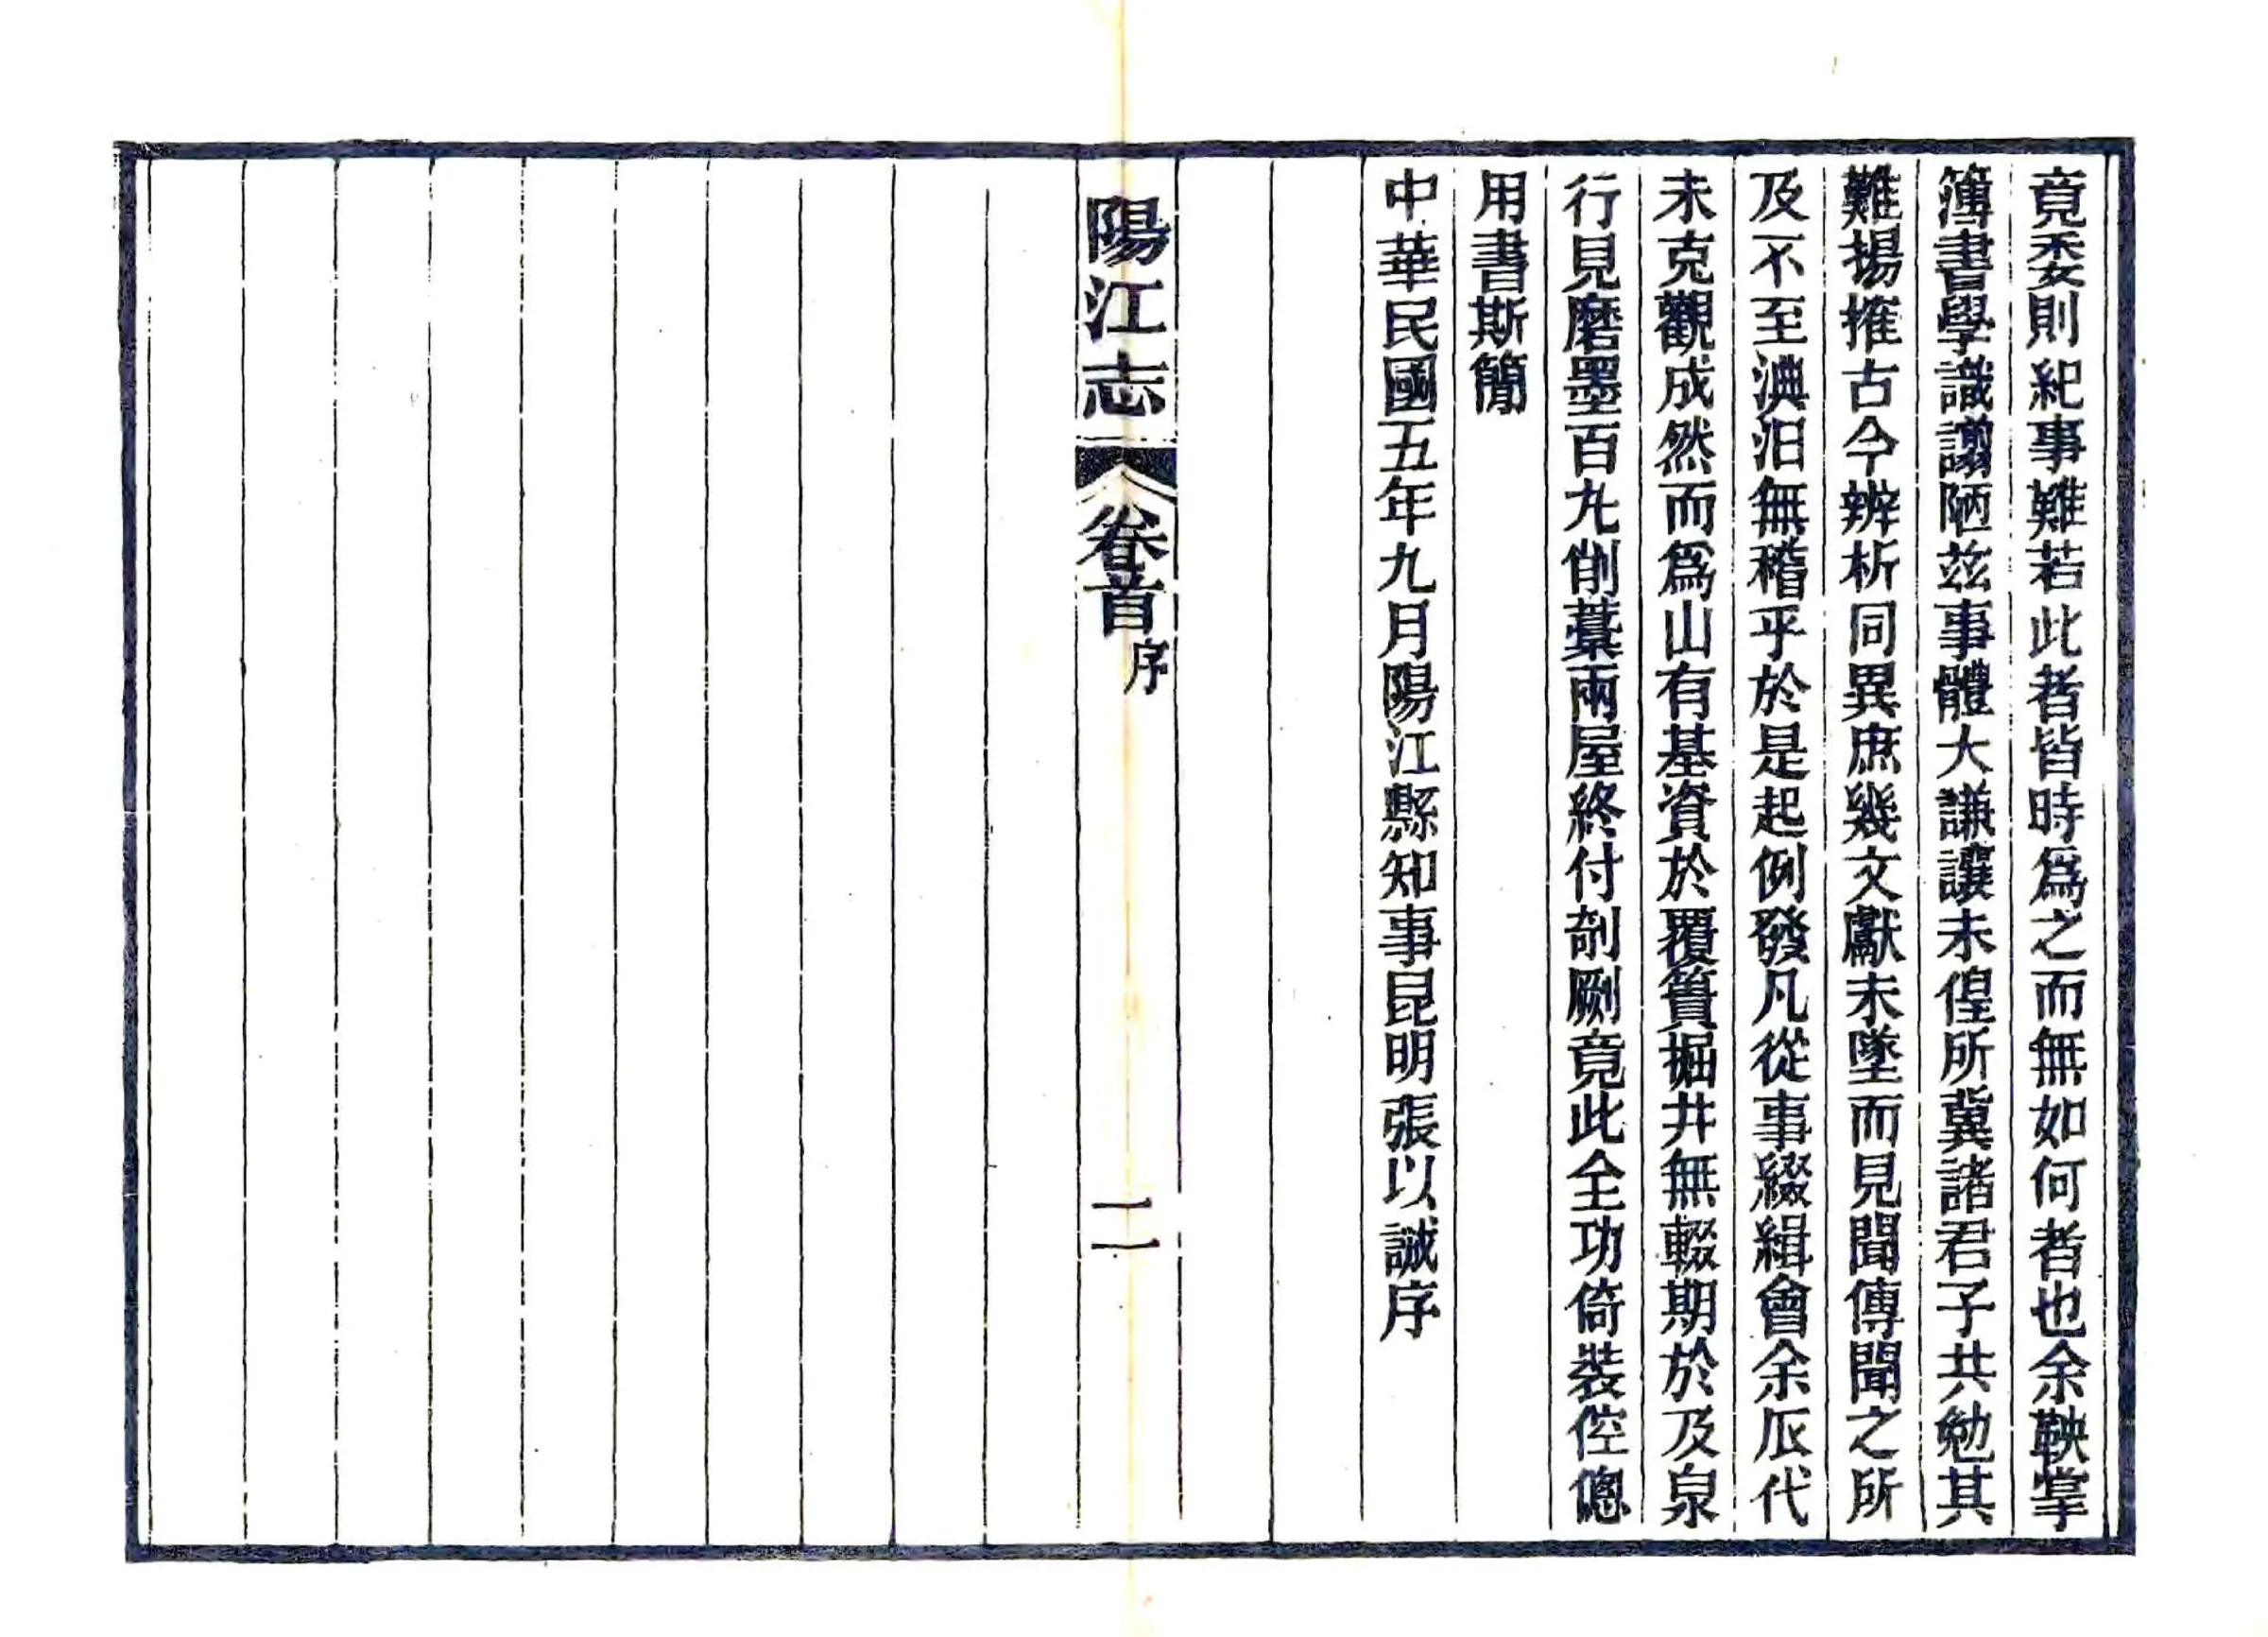 竟委則紀事難若此者皆時爲之而無如何者也余鞅掌
簿書學識譾陋茲事體大謙讓未偟所冀諸君子共勉其
難揚搉古今辨析同異庶幾文獻未墜而見聞傳聞之所
及不至淟汩無稽乎於是起例發凡從事綴緝會余瓜代
未克觀成然而爲山有基資於覆簣掘井無輟期於及泉
行見磨墨百丸削藁兩屋終付剞劂竟此全功倚裝倥傯
用書斯簡
中華民國五年九月陽江縣知事昆明張以誠序
陽江志 卷首 序 二